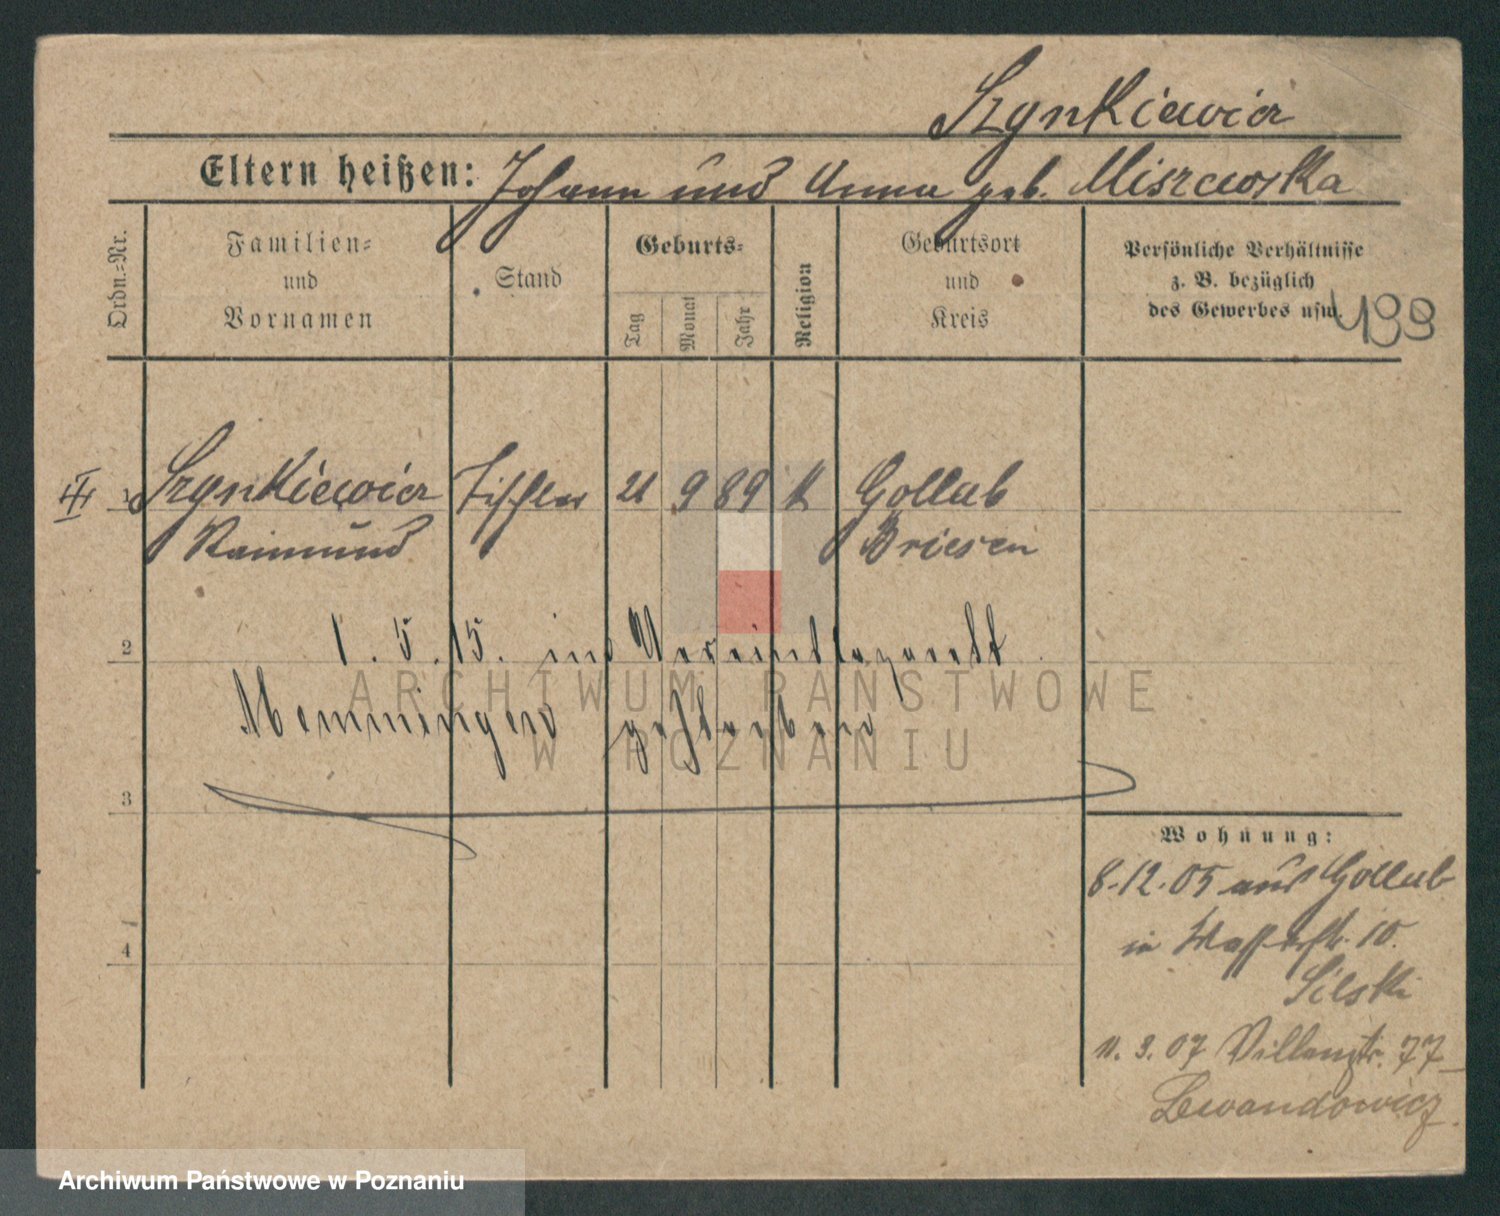 Szynkiewicz
Eltern heißen: Johann und Anna geb. Miszewska
Ordn.-Nr.
Familien- und Vornamen
Stand
Geburts-
Tag Monat Jahr
Religion
Geburtsort und Kreis
Persönliche Verhältnisse
z. B. bezüglich
des Gewerbes usw.
199
III 1 Szynkiewicz Tischler 21 9 89 K Gollub
Raimund Briesen
2 1. 5. 15. im Vereinslazarett
Memmingen gestorben
ARCHIWUM PAŃSTWOWE
W POZNANIU
3
Wohnung:
8.12.05 aus Gollub
in Wasserstr. 10.
Silski
4
11. 3. 07 Villenstr. 77
Lewandowicz
Archiwum Państwowe w Poznaniu